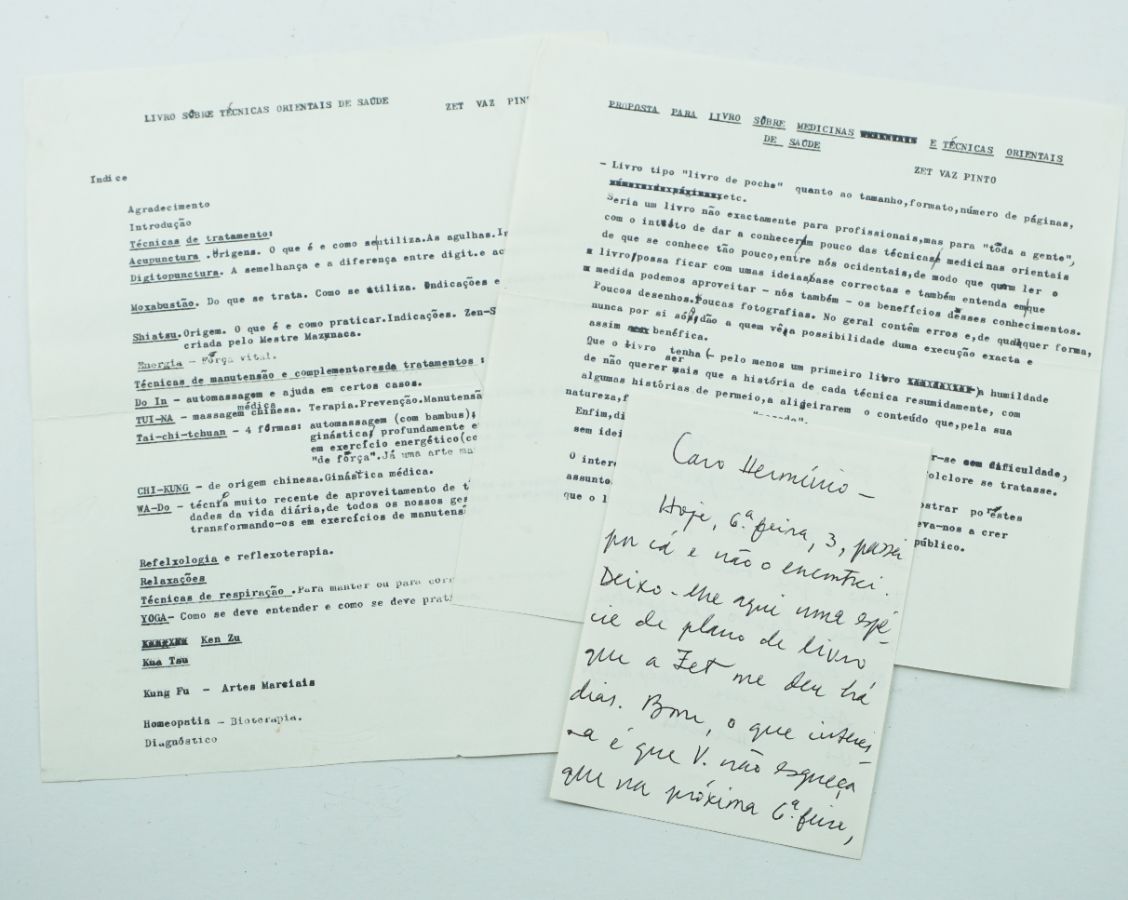 LIVRO SÔBRE TÉCNICAS ORIENTAIS DE SAÚDE ZET VAZ PIN
Indice
Agradecimento
Introdução
Técnicas de tratamento:
Acupunctura .Origens. O que é e como se utiliza.As agulhas.
Digitopunctura. A semelhança e a diferença entre digit.e ac
Moxabustão. Do que se trata. Como se utiliza. Indicações e
Shiatsu.Origem. O que é e como praticar.Indicações. Zen-S
criada pelo Mestre Mazunaca.
Energia - Fôrça vital.
Técnicas de manutensão e complementares da tratamentos :
Do In - automassagem e ajuda em certos casos.
TUI-NA - massagem médica chinesa. Terapia.Prevenção.Manutensã
Tai-chi-tchuan - 4 fôrmas: automassagem (com bambus);
ginástica, profundamente e
em exercício energético(co
"de fôrça".Já uma arte ma
CHI-KUNG - de origem chinesa.Ginástica médica.
WA-Do - técnica muito recente de aproveitamento de
dados da vida diária,de todos os nossos ges
transformando-os em exercícios de manutens
Refelxologia e reflexoterapia.
Relaxações
Técnicas de respiração .Para manter ou para corr
YOGA- Como se deve entender e como se deve prat
Ken Zu
Kua Tsu
Kung Fu - Artes Marciais
Homeopatia - Bioterapia.
Diagnóstico
PROPOSTA PARA LIVRO SÔBRE MEDICINAS E TÉCNICAS ORIENTAIS
DE SAÚDE
ZET VAZ PINTO
- Livro tipo "livro de poche" quanto ao tamanho,formato,número de páginas,
etc.
Seria um livro não exactamente para profissionais,mas para "tôda a gente",
com o intúito de dar a conhecer um pouco das técnicas e medicinas orientais
de que se conhece tão pouco,entre nós ocidentais,de modo que quem ler o
livro possa ficar com umas ideias base correctas e também entenda em que
medida podemos aproveitar - nós também - os benefícios dêsses conhecimentos.
Poucos desenhos.Poucas fotografias. No geral contêm erros e,de qualquer forma,
nunca por si só, dão a quem vê,a possibilidade duma execução exacta e
assim benéfica.
Que o livro tenha - pelo menos um primeiro livro - a humildade
de não querer ser mais que a história de cada técnica resumidamente, com
algumas histórias de permeio,a aligeirarem o conteúdo que,pela sua
natureza,f
Enfim,di r-se sem dificuldade,
sem idei folclore se tratasse.
O inter ostrar por estes
assunto eva-nos a crer
que o l público.
Caro Hermínio -
Hoje, 6ª feira, 3, passei
por cá e não o encontrei.
Deixo-lhe aqui uma espé-
cie de plano de livro
que a Zet me deu há
dias. Bom, o que interes-
sa é que V. não esqueça
que na próxima 6ª feira,